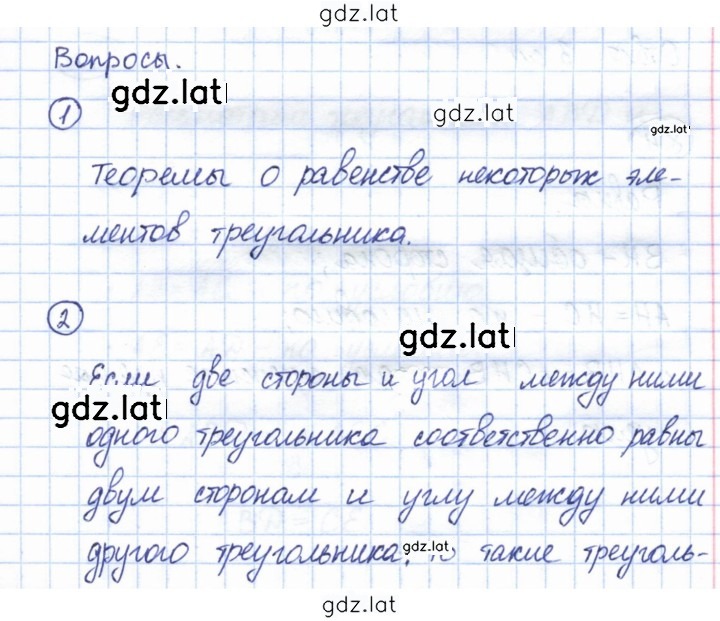 gdz.lat
Вопросы.
gdz.lat
gdz.lat
1
gdz.lat
Теоремы о равенстве некоторых эле-
ментов треугольника.
2
gdz.lat
Если две стороны и угол между ними
gdz.lat
одного треугольника соответственно равны
двум сторонам и углу между ними
другого треугольника, gdz.lat такие треуголь-
gdz.lat